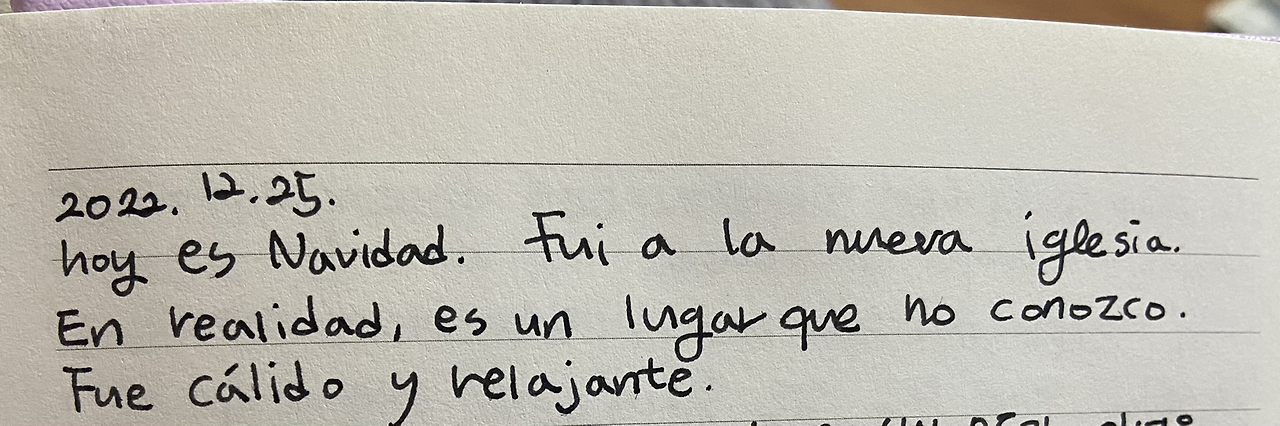 2022. 12.25.
hoy es Navidad. Fui a la nueva iglesia.
En realidad, es un lugar que no conozco.
Fue cálido y relajante.